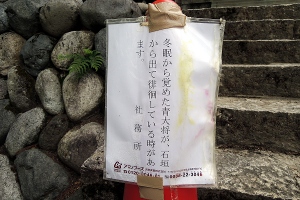 冬眠から覚めた青大将が、石垣
から出て徘徊している時があり
ます。
社務所